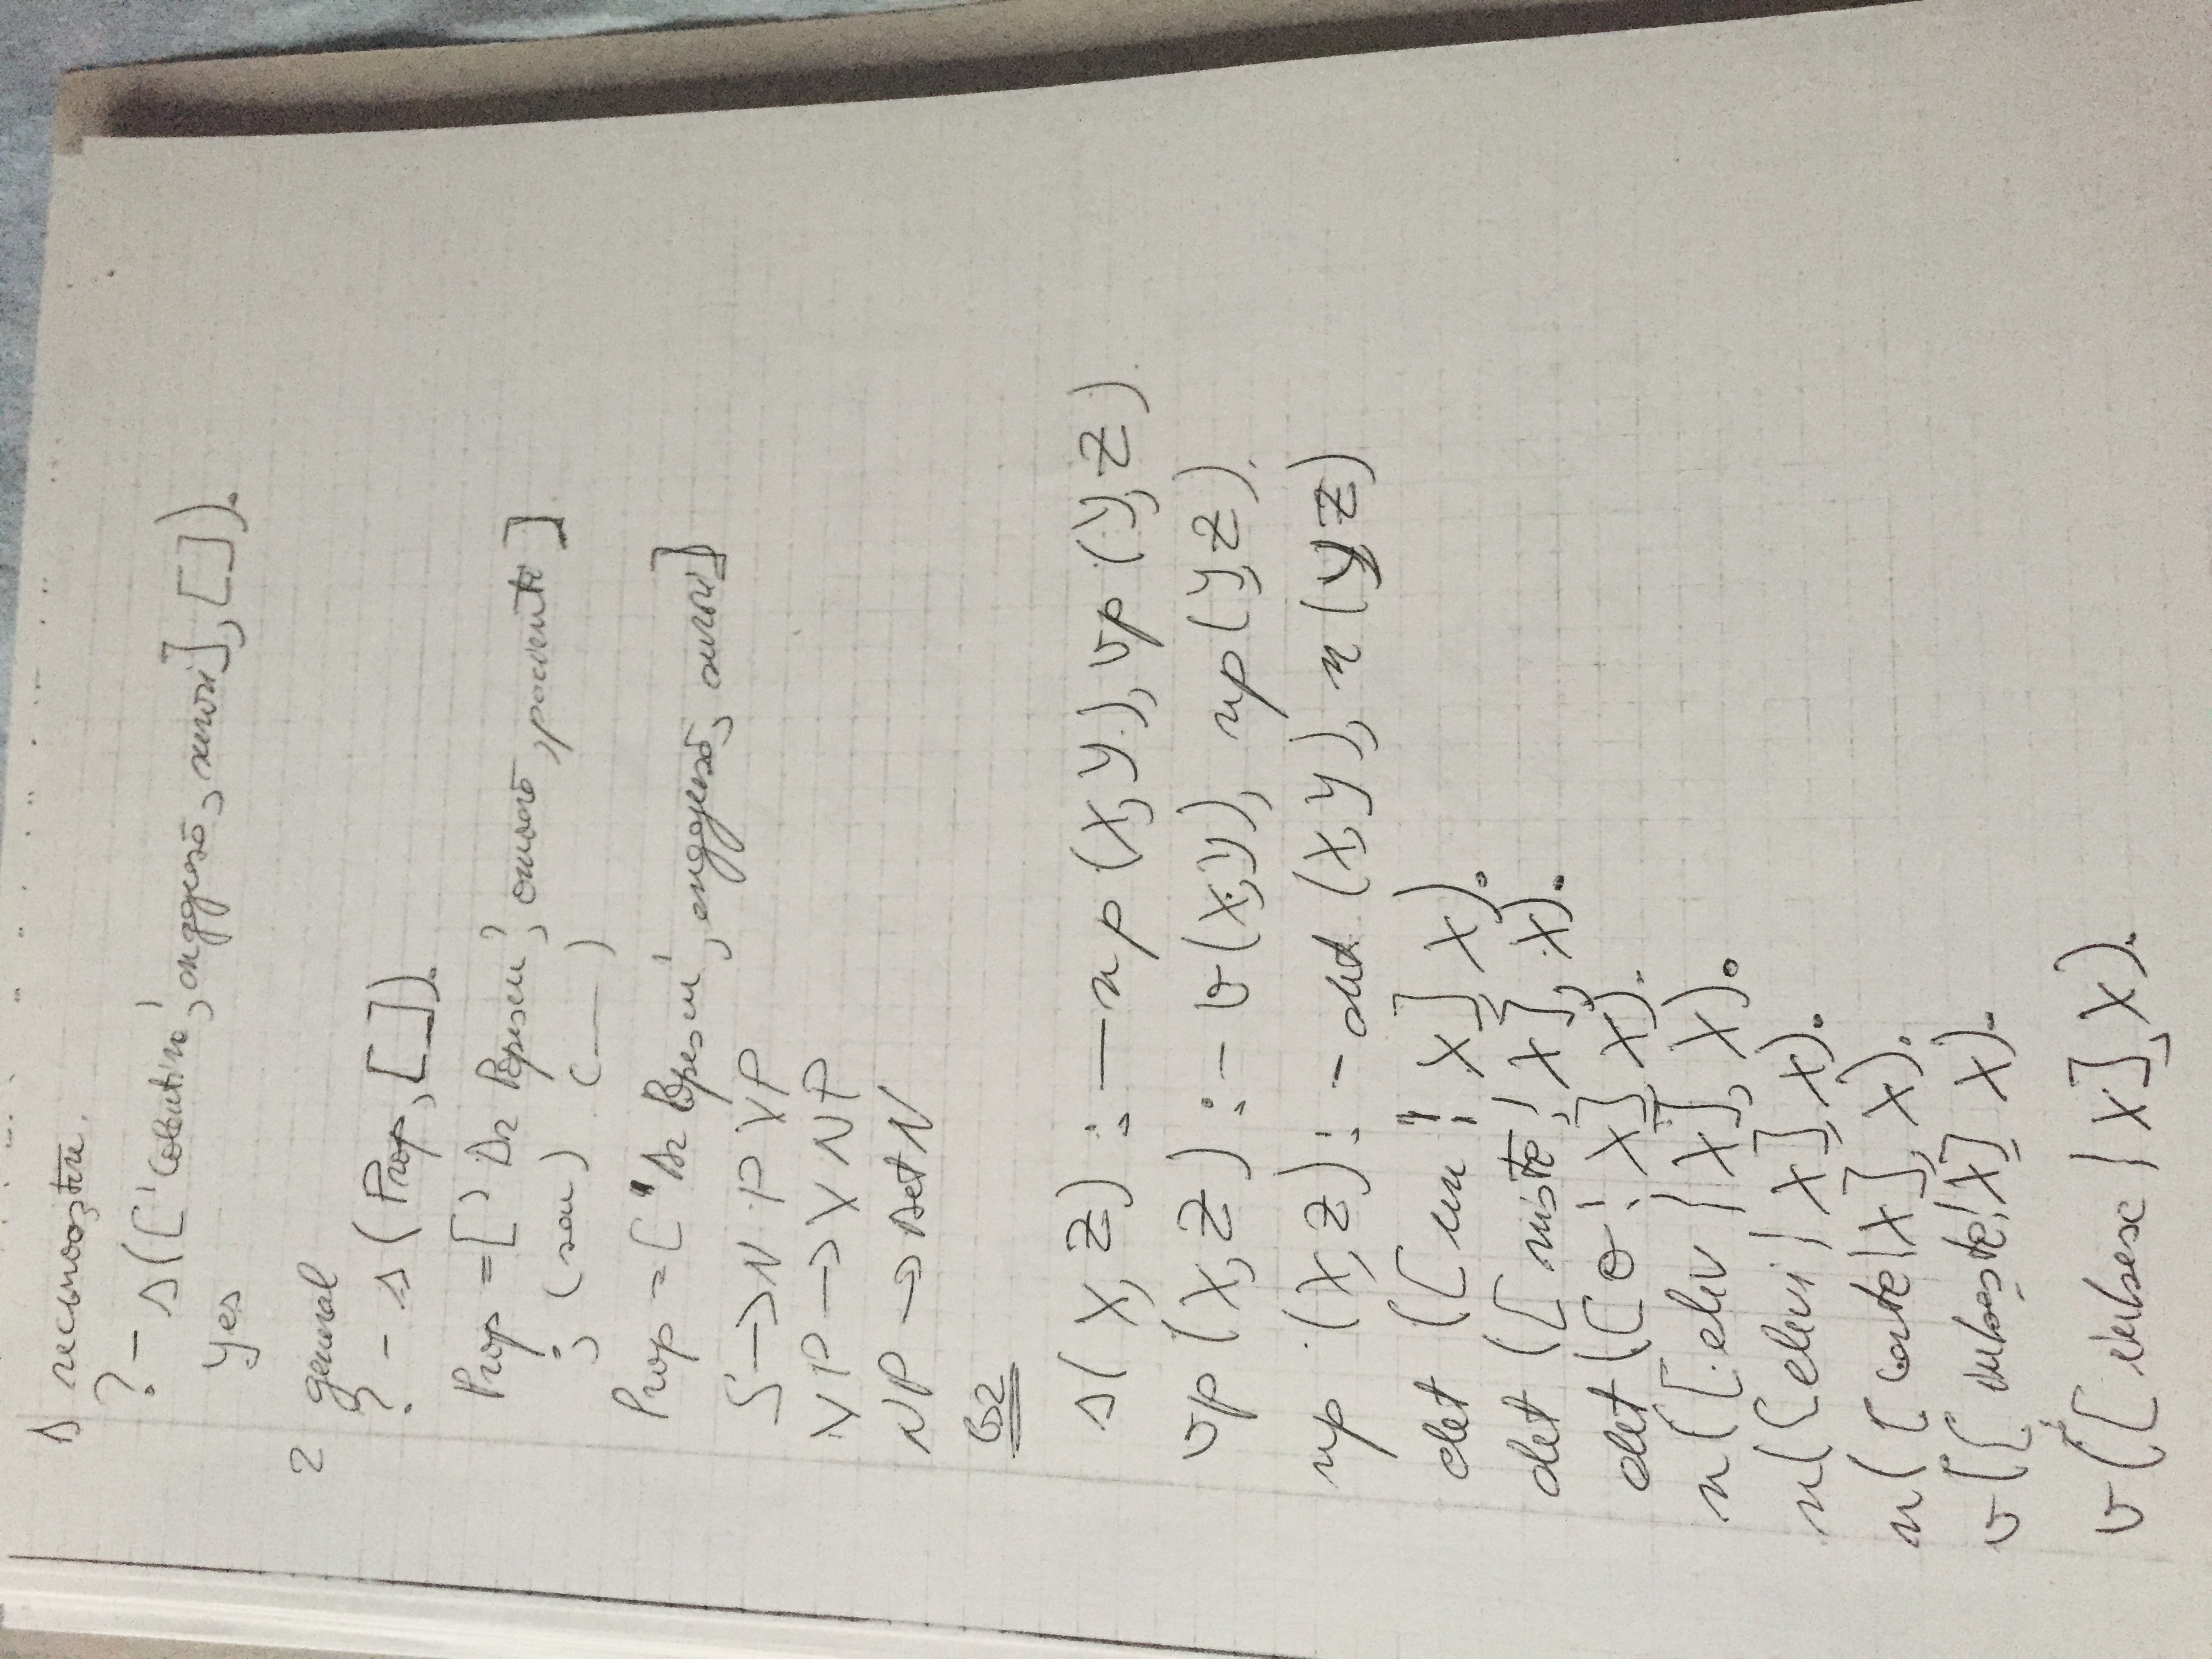 1 recunoaștere.
?- s(['Colentina', angajează, surori], []).
yes
2 general
?- s(Prop, []).
Prop = ['Dr Popescu', omoară, pacienti]
; (sau) (—)
Prop = ['Dr Popescu', angajează, surori]
S → N P VP
VP → V NP
NP → Det N
G2
s(X, Z) :- np(X, Y), vp(Y, Z).
vp(X, Z) :- v(X, Y), np(Y, Z).
np (X, Z) :- det (X, Y), n(Y, Z)
det ([un | X], X).
det ([niste | X], X).
det ([o | X], X).
n([elev | X], X).
n([elevi | X], X).
n([carte | X], X).
v([iubește | X], X).
v([iubesc | X], X).